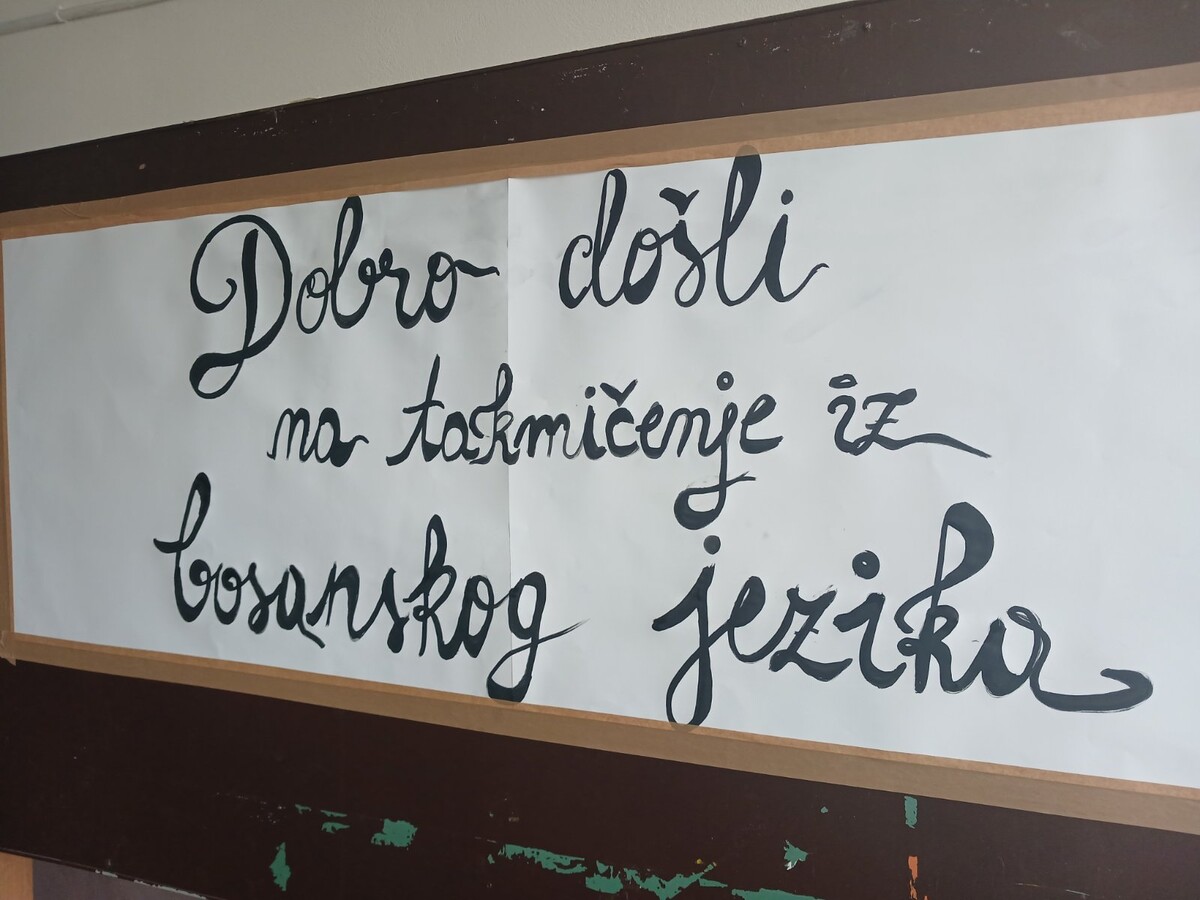 Dobro došli
na takmičenje iz
bosanskog jezika